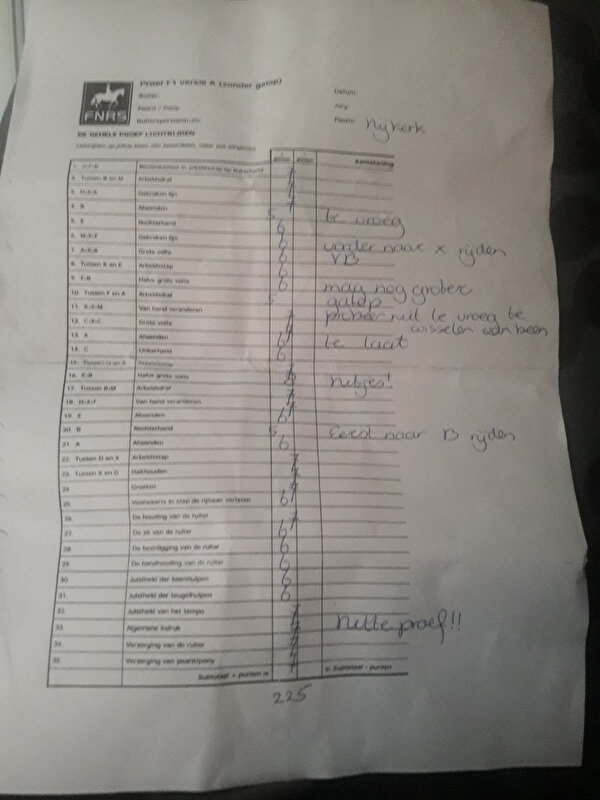 Proef F1 versie A (zonder galop)
Ruiter:
Datum:
FNRS
Paard / Pony:
Jury:
Ruitersportcentrum:
Plaats: Nijkerk
DE GEHELE PROEF LICHTRIJDEN
punten
Aanmerking
1. A-X-B Binnenkomen in arbeidsstap op linkerhand 7
2. Tussen B en M Arbeidsdraf 7
3. H-X-K Gebroken lijn 7
4. B Afwenden 7
5. E Rechterhand 5 te vroeg
6. M-X-F Gebroken lijn 6 verder naar x rijden
7. A-X-A Grote volte 6 VB
8. Tussen K en E Arbeidsstap 6
9. E-B Halve grote volte 6 mag nog groter
10. Tussen F en A Arbeidsdraf galop
11. K-X-M Van hand veranderen 5 probeer niet te vroeg te
12. C-X-C Grote volte 7 wisselen van been
13. A Afwenden 6 te laat
14. C Linkerhand 6
15. Arbeidsstap
16. E-B Halve grote volte netjes!
17. Tussen B-M Arbeidsdraf 7
18. H-X-F Van hand veranderen 7
19. E Afwenden 6
20. B Rechterhand 5 Eerst naar B rijden
21. A Afwenden 6
22. Tussen D en X Arbeidsstap 7
23. Tussen X en G Halthouden 7
24. Groeten 7
25. Voorwaarts in stap de rijbaan verlaten 6
26. De houding van de ruiter 7
27. De zit van de ruiter 6
28. De beenligging van de ruiter 6
29. De handhouding van de ruiter 6
30. Juistheid der beenhulpen 6
31. Juistheid der teugelhulpen 6
32. Juistheid van het tempo 7
33. Algemene indruk 7 Nette proef!!
34. Verzorging van de ruiter 7
35. Verzorging van paard/pony 7
Subtotaal + punten = = Subtotaal - punten
225